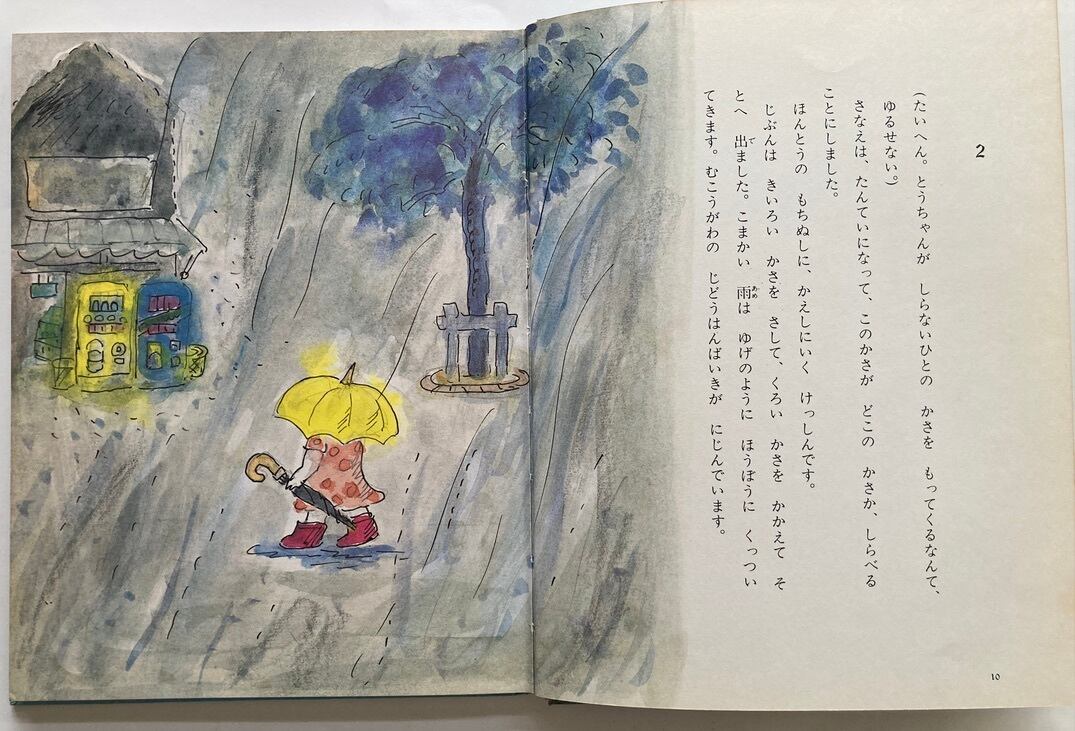 2
(たいへん。とうちゃんが　しらないひとの　かさを　もってくるなんて、
ゆるせない。)
さなえは、たんていになって、このかさが　どこの　かさか、しらべる
ことにしました。
ほんとうの　もちぬしに、かえしにいく　けっしんです。
じぶんは　きいろい　かさを　さして、くろい　かさを　かかえて　そ
とへ　出ました。こまかい　雨は　ゆげのように　ほうぼうに　くっつい
てきます。むこうがわの　じどうはんばいきが　にじんでいます。
10